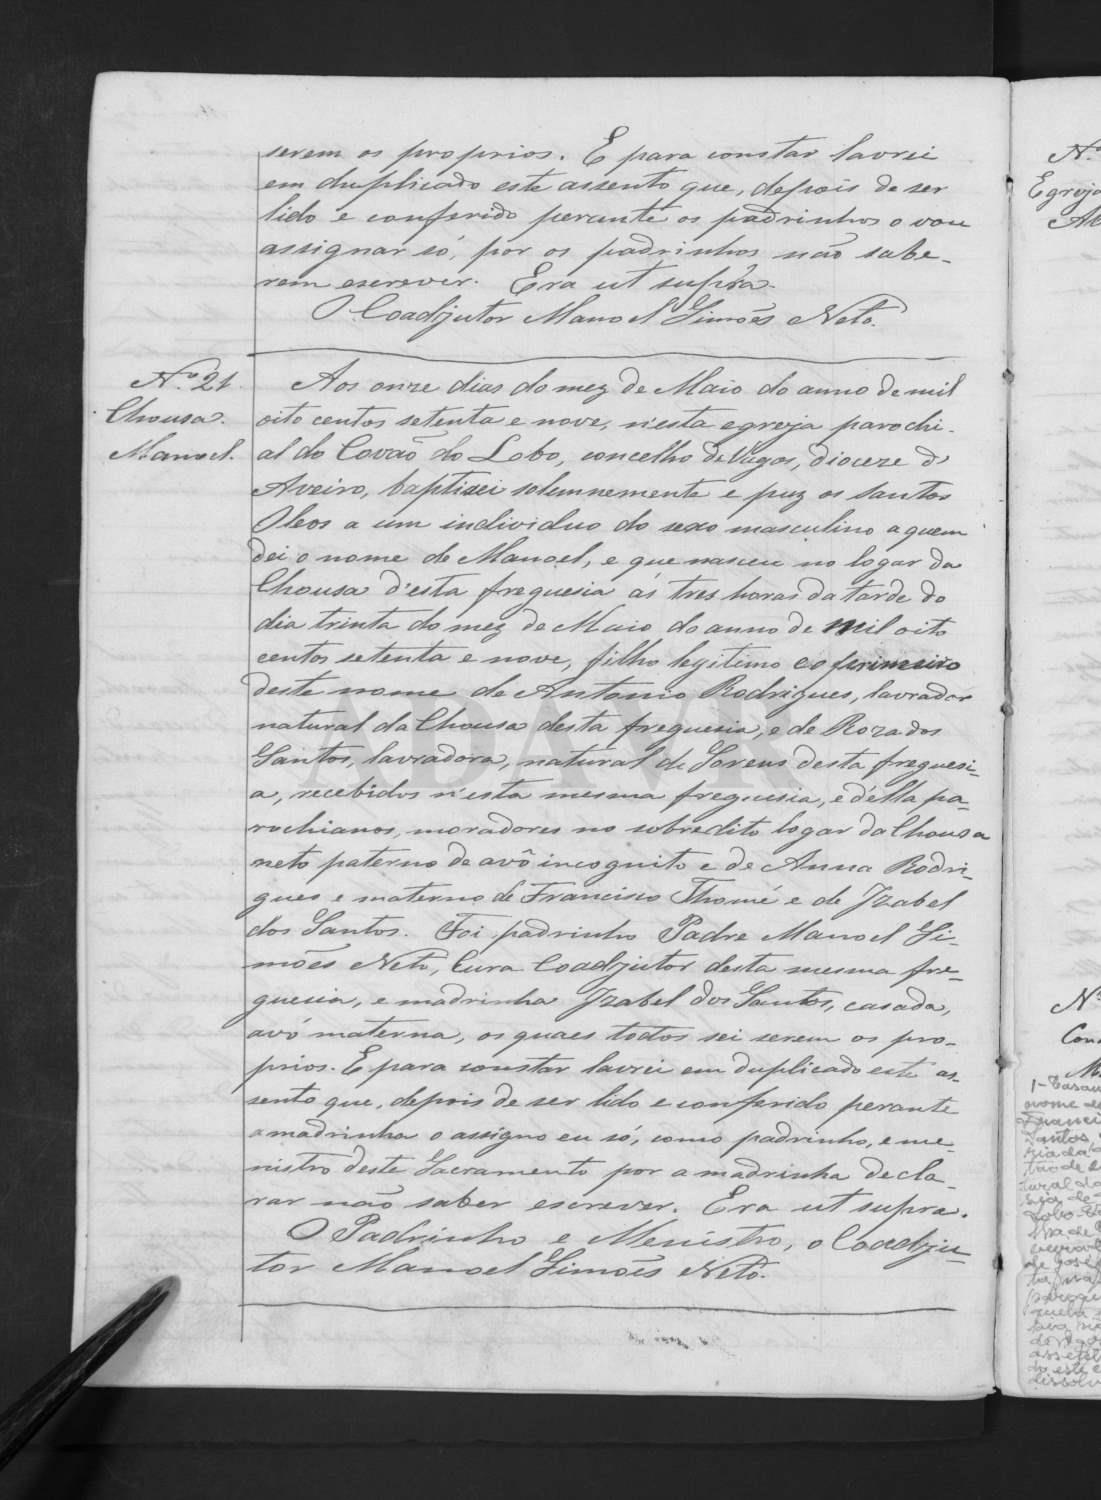 serem os proprios. E para constar lavrei
em duplicado este assento que, depois de ser
lido e conferido perante os padrinhos o vou
assignar só, por os padrinhos não sabe-
rem escrever. Era ut supra.
O Coadjutor Manoel Simões Neto.
N.º 21.
Chousa.
Manoel.
Aos onze dias do mez de Maio do anno de mil
oito centos setenta e nove, n'esta egreja parochi-
al do Covão do Lobo, concelho de Vagos, diocese d'
Aveiro, baptisei solemnemente e puz os Santos
Oleos a um individuo do sexo masculino a quem
dei o nome de Manoel, e que nasceu no logar da
Chousa d'esta freguesia ás tres horas da tarde do
dia trinta do mez de Maio do anno de mil oito
centos setenta e nove, filho legitimo e o primeiro
deste nome de Antonio Rodrigues, lavrador
natural da Chousa desta freguesia, e de Roza dos
Santos, lavradora, natural de Sorens desta freguesi-
a, recebidos n'esta mesma freguesia, e d'ella pa-
rochianos, moradores no sobredito logar da Chousa
neto paterno de avô incognito e de Anna Rodri-
gues e materno de Francisco Thomé e de Izabel
dos Santos. Foi padrinho Padre Manoel Si-
mões Neto, Cura Coadjutor desta mesma fre-
guesia, e madrinha Izabel dos Santos, casada,
avó materna, os quaes todos sei serem os pro-
prios. E para constar lavrei em duplicado este as-
sento que, depois de ser lido e conferido perante
a madrinha o assigno eu só, como padrinho, e me-
nistro deste Sacramento por a madrinha decla-
rar não saber escrever. Era ut supra.
O Padrinho e Menistro, o Coadju-
tor Manoel Simões Neto.
ADAVR
N.º
Egreja
N.º
1-Casou
nome de